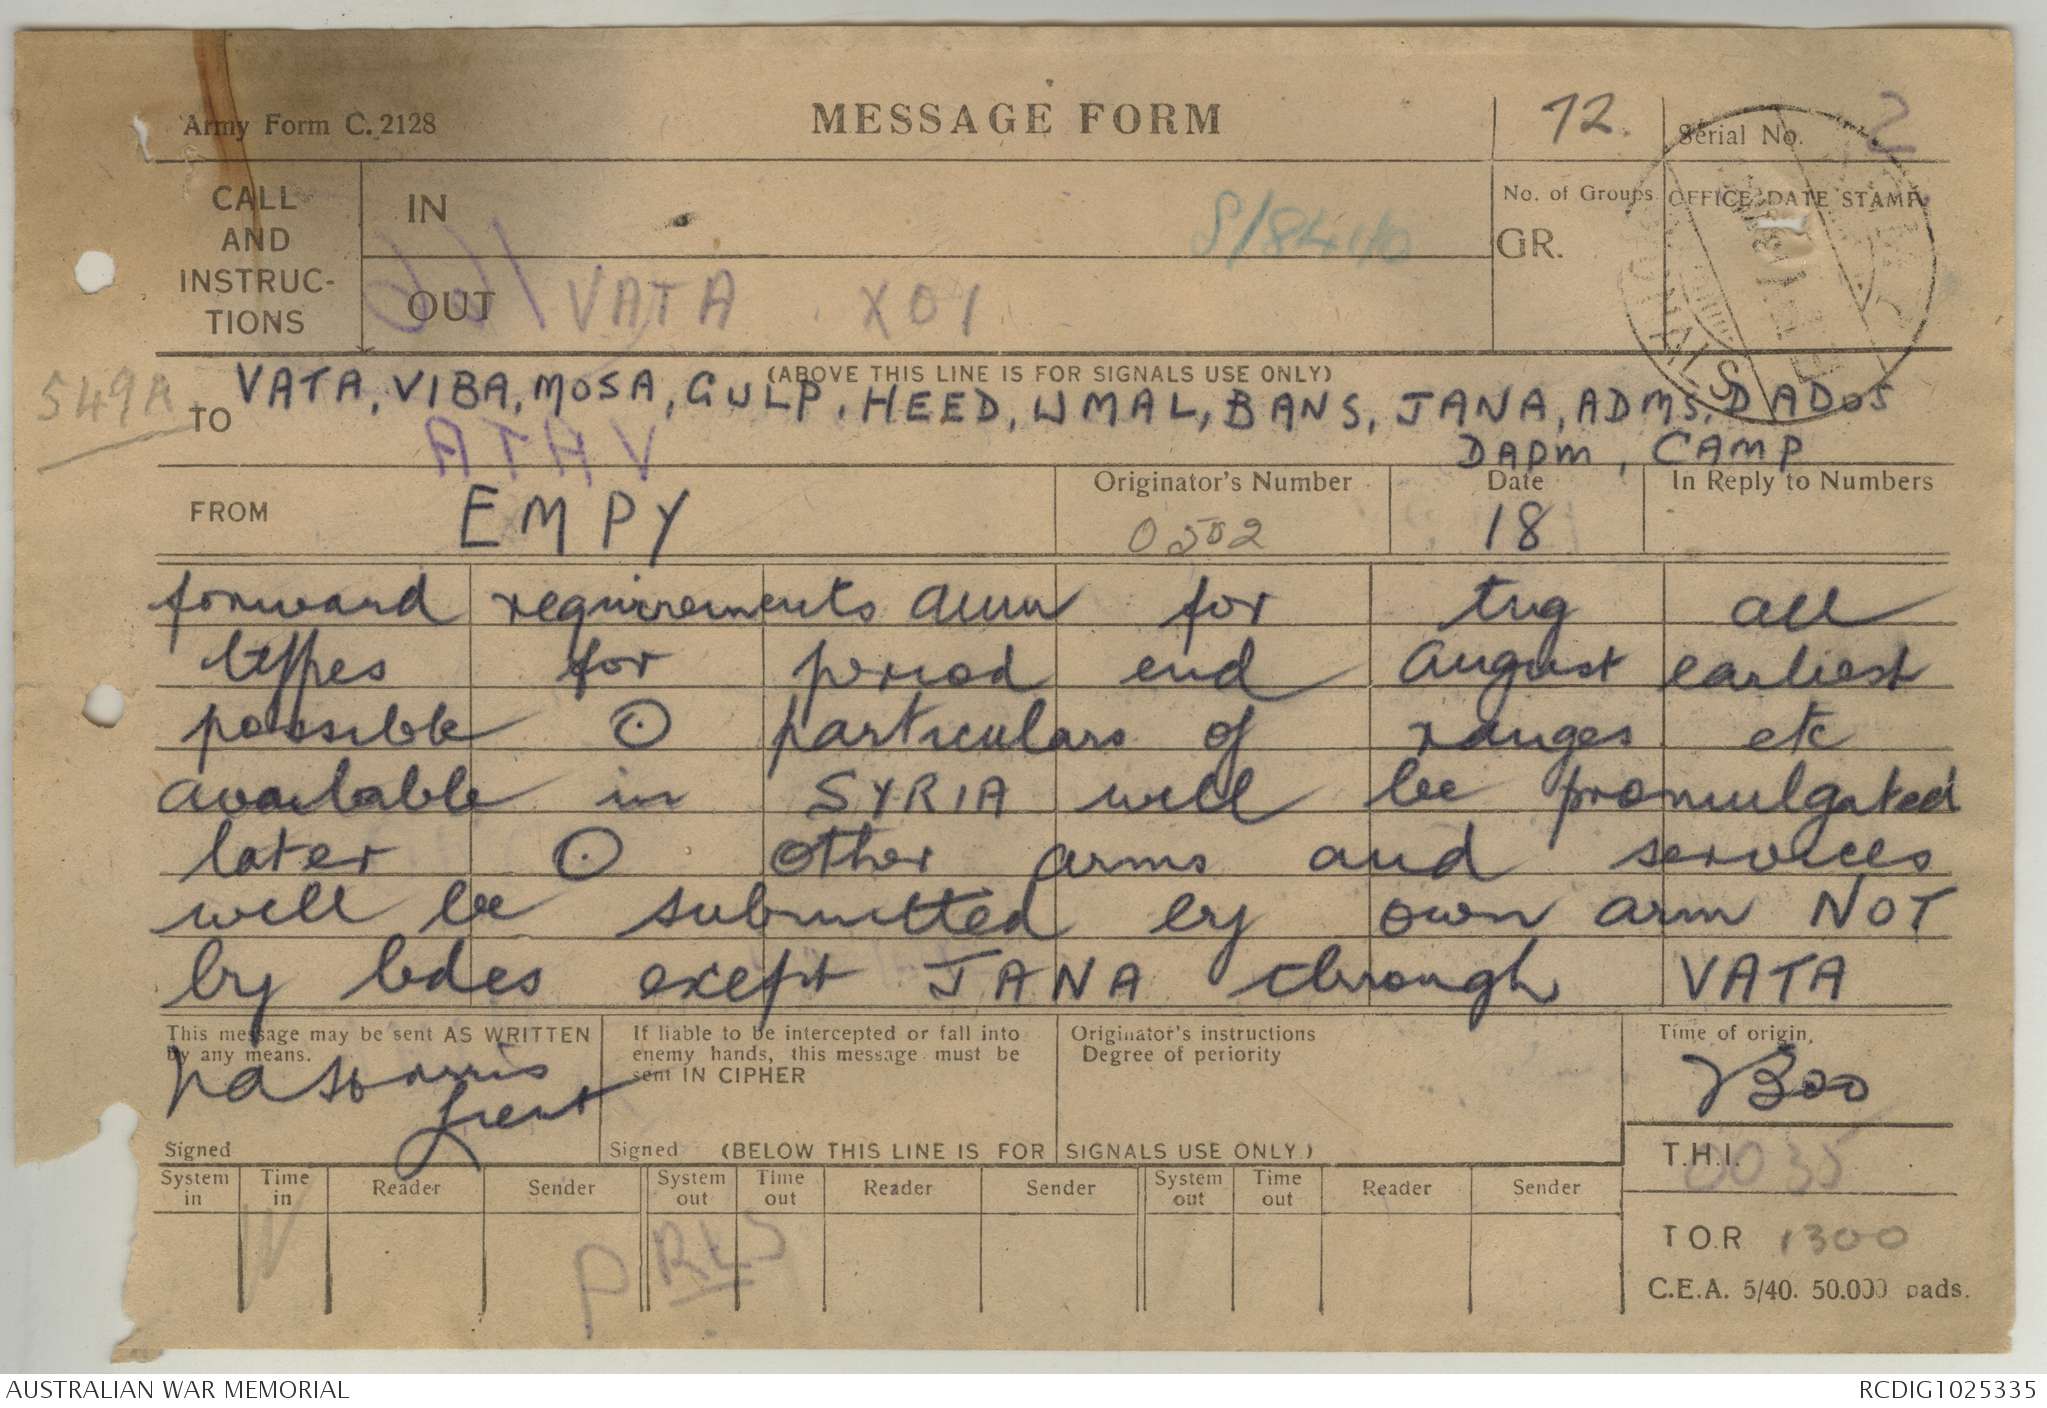 Army Form C. 2128
MESSAGE FORM
72.
Serial No. 2
CALL
AND
INSTRUC-
TIONS
IN
S/84/10
No. of Groups
GR.
OFFICE DATE STAMP
SIGNALS
OUT
VATA X01
(ABOVE THIS LINE IS FOR SIGNALS USE ONLY)
549A
TO VATA, VIBA, MOSA, GULP, HEED, WMAL, BANS, JANA, ADMS, DADOS
DAPM, CAMP
ATAV
FROM EMPY
Originator's Number
0502
Date
18
In Reply to Numbers
forward requirements amn for trg all
types for period end August earliest
possible ⊙ particulars of ranges etc
available in SYRIA will be promulgated
later ⊙ other arms and services
will be submitted by own arm NOT
by bdes except JANA through VATA
This message may be sent AS WRITTEN
by any means.
Signed
If liable to be intercepted or fall into
enemy hands, this message must be
sent IN CIPHER
Signed
Originator's instructions
Degree of periority
Time of origin.
(BELOW THIS LINE IS FOR SIGNALS USE ONLY.)
T.H.I. 0035
System in
Time in
Reader
Sender
System out
Time out
Reader
Sender
System out
Time out
Reader
Sender
T O.R 1300
P RLS
C.E.A. 5/40. 50.000 pads.
AUSTRALIAN WAR MEMORIAL
RCDIG1025335